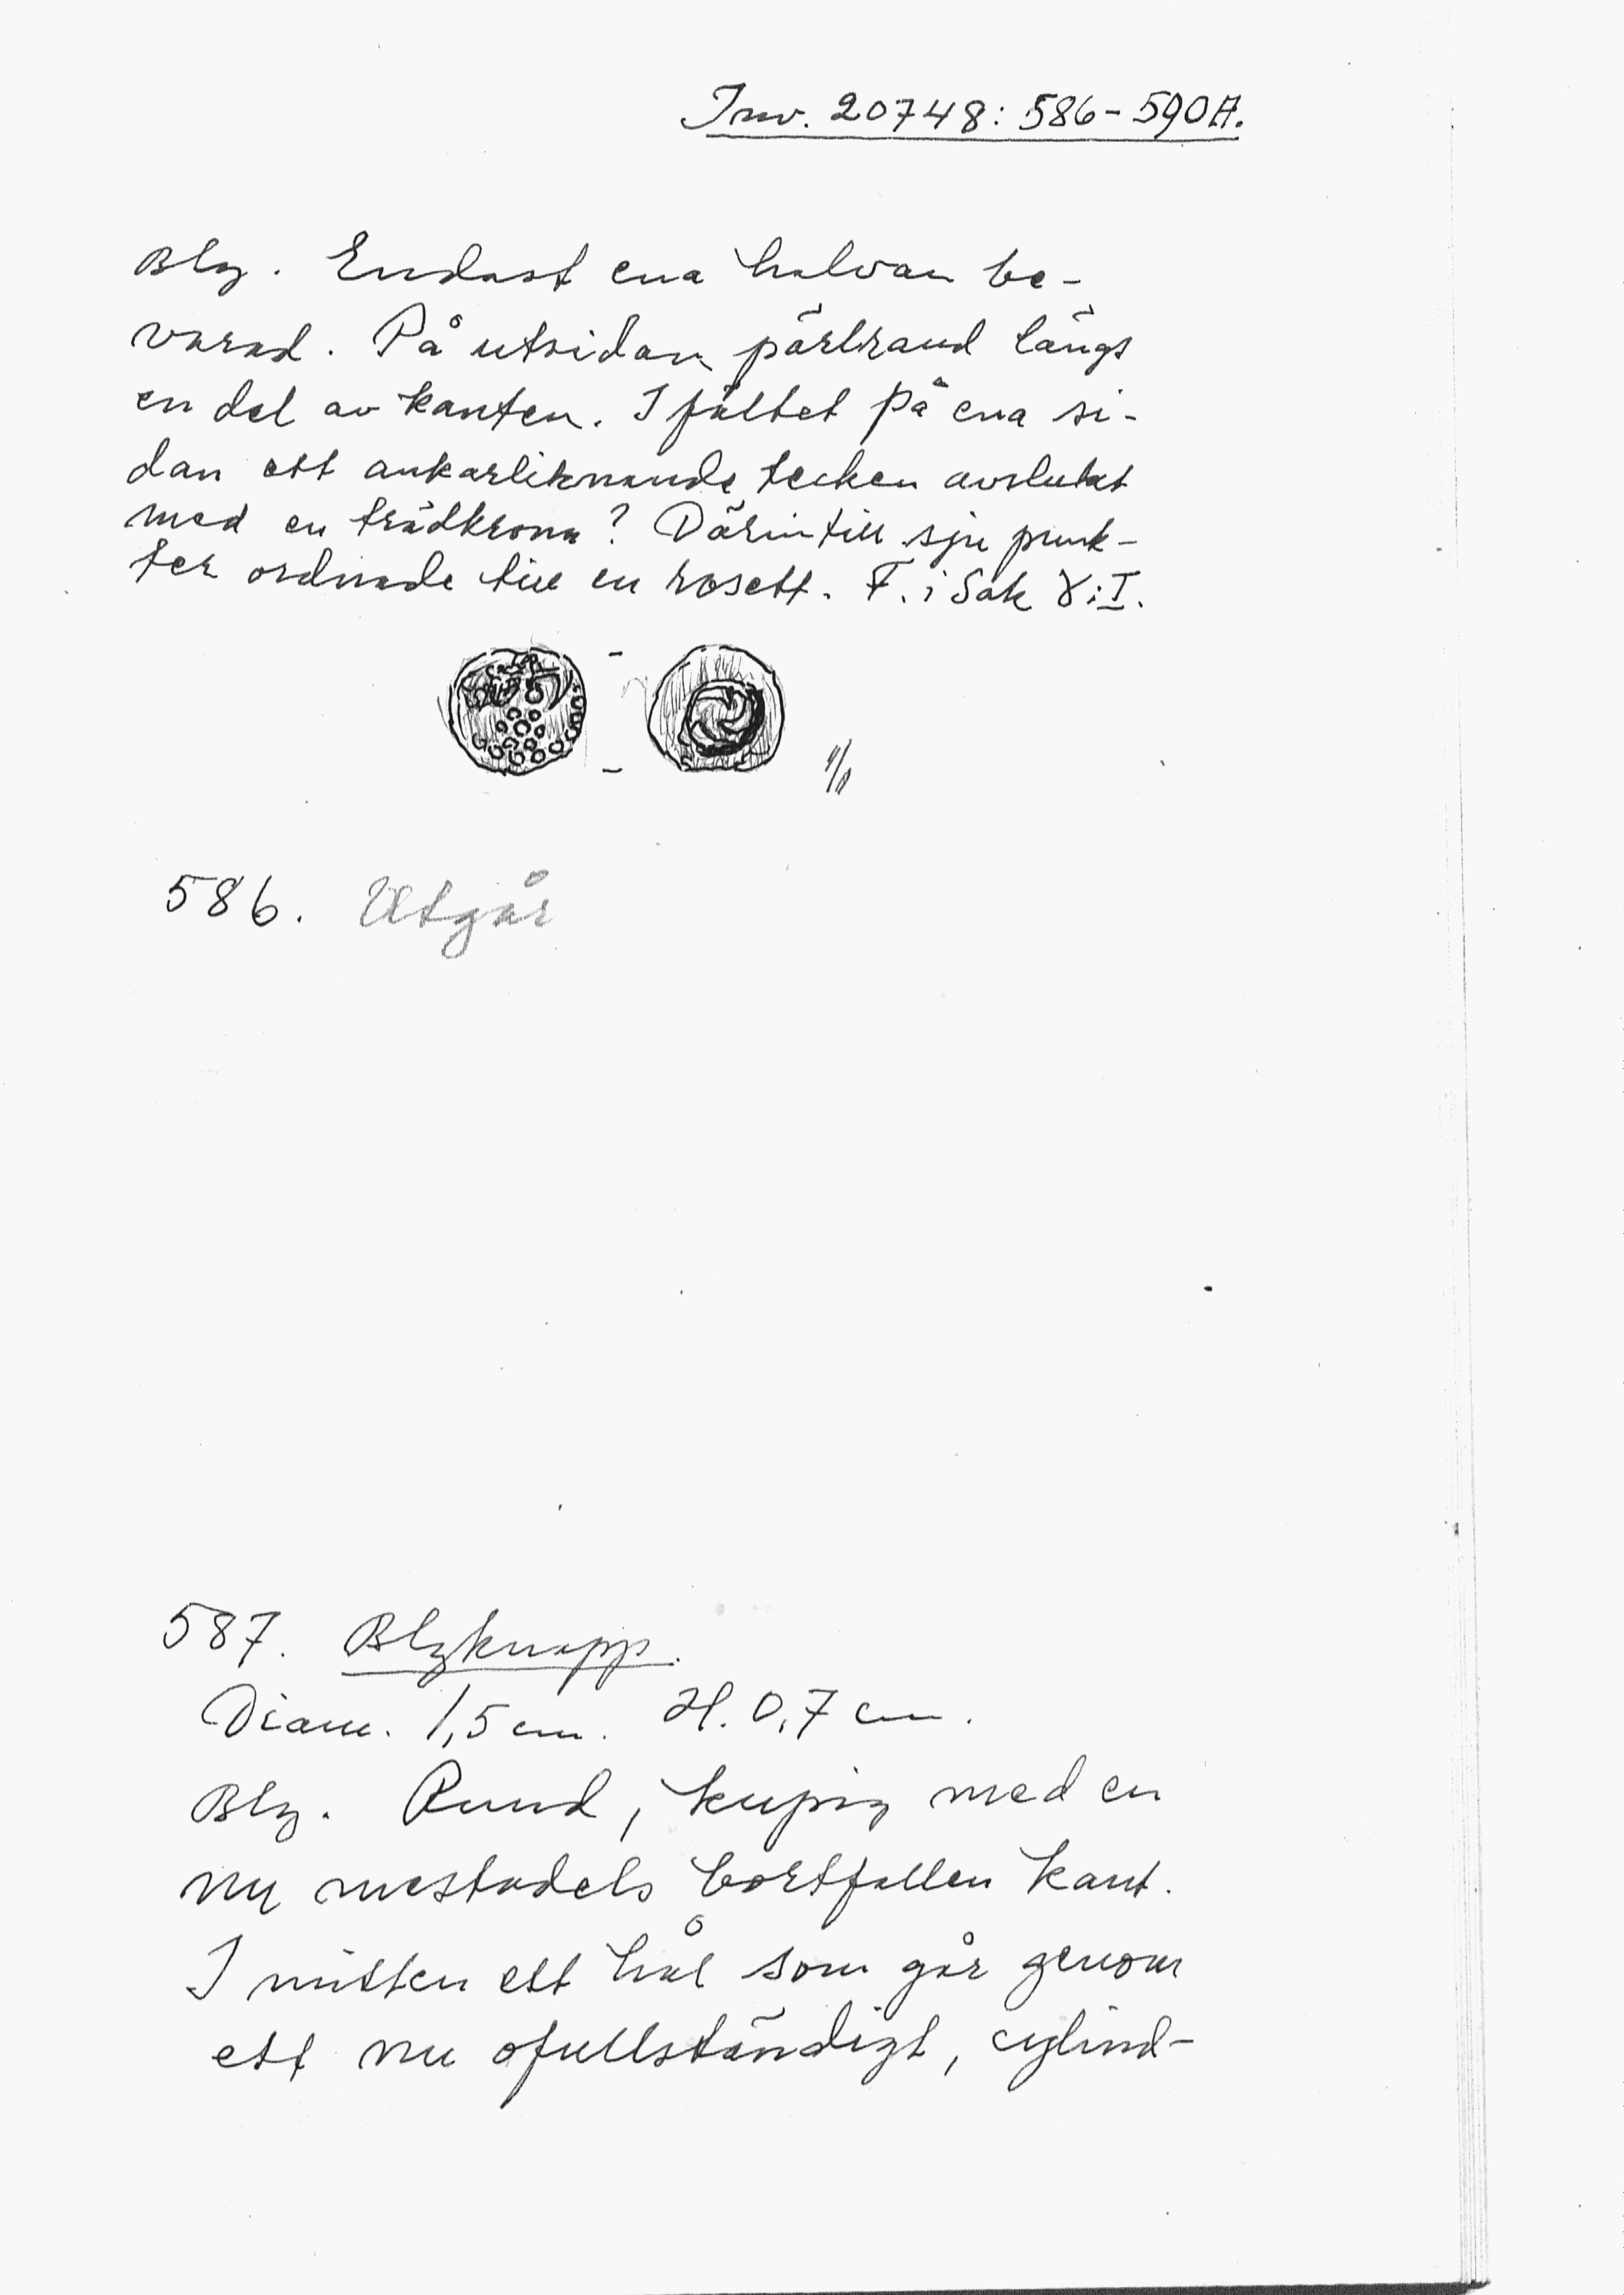 Inv. 20748: 586-590A.
Bly. Endast ena halvan be-
varad. På utsidan pärlrand längs
en del av kanten. I fältet på ena si-
dan ett ankarliknande tecken avslutat
med en trädkrona? Därintill sju punk-
ter ordnade till en rosett. F. i Sak
1/1
586. Utgår
587. Blyknapp.
Diam. 1,5 cm. H. 0,7 cm.
Bly. Rund, kupig med en
nu mestadels bortfallen kant.
I mitten ett hål som går genom
ett nu ofullständigt, cylind-